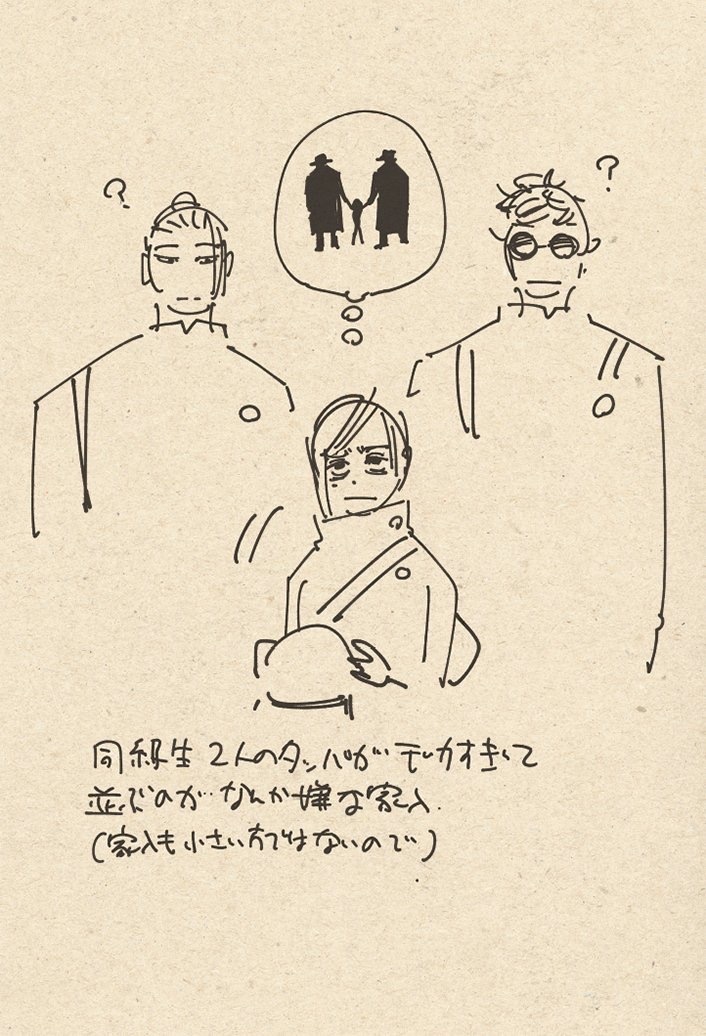 ?
?
同級生 2人のタッパがデカすぎて
並ぶのが なんか嫌な家入.
(家入も小さい方ではないので)